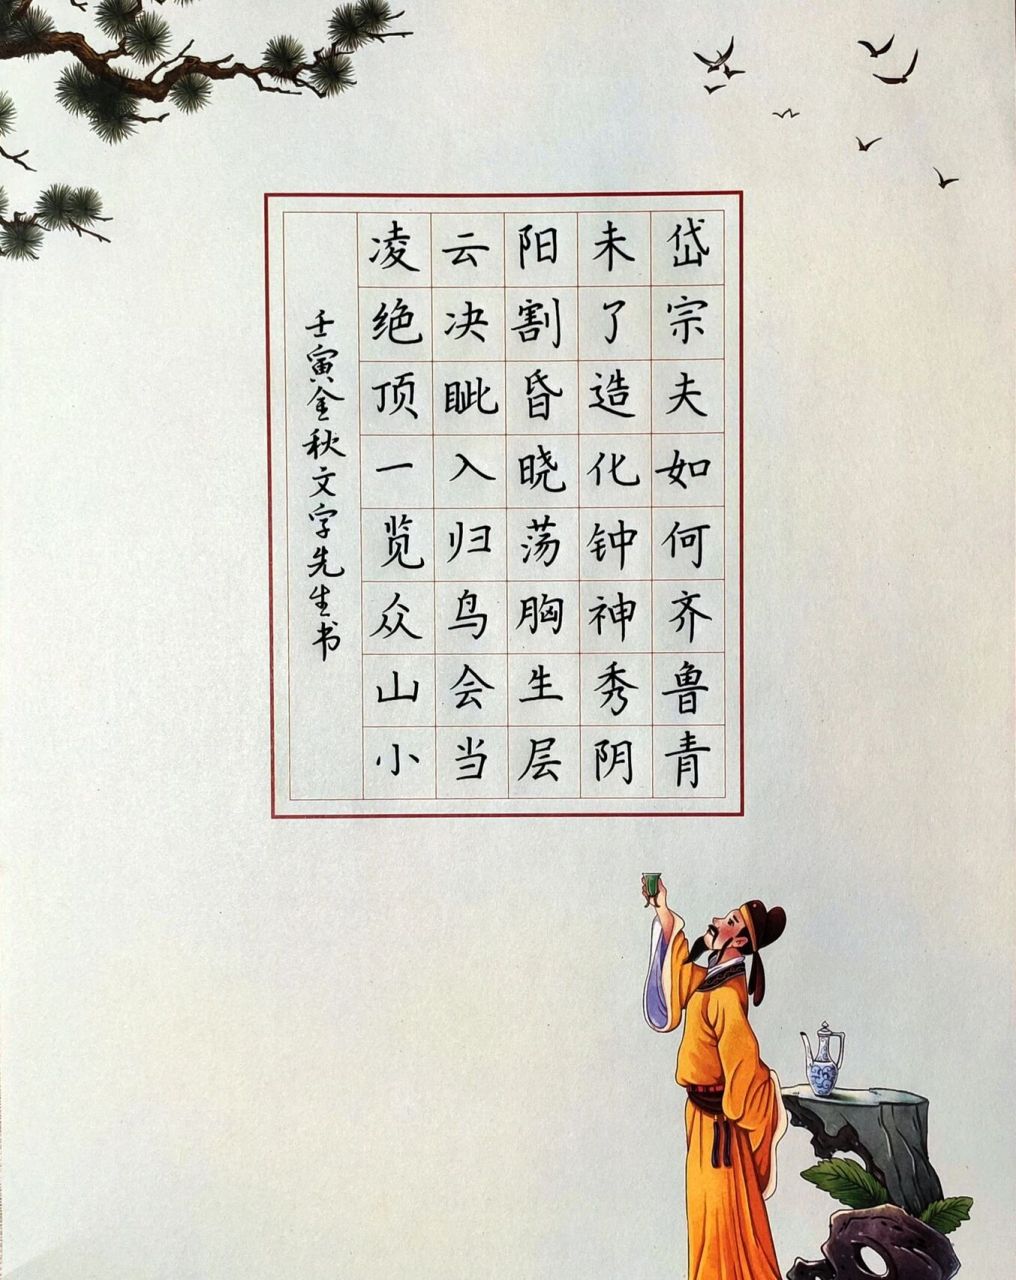 岱宗夫如何齐鲁青
未了造化钟神秀阴
阳割昏晓荡胸生层
云决眦入归鸟会当
凌绝顶一览众山小
壬寅金秋文字先生书